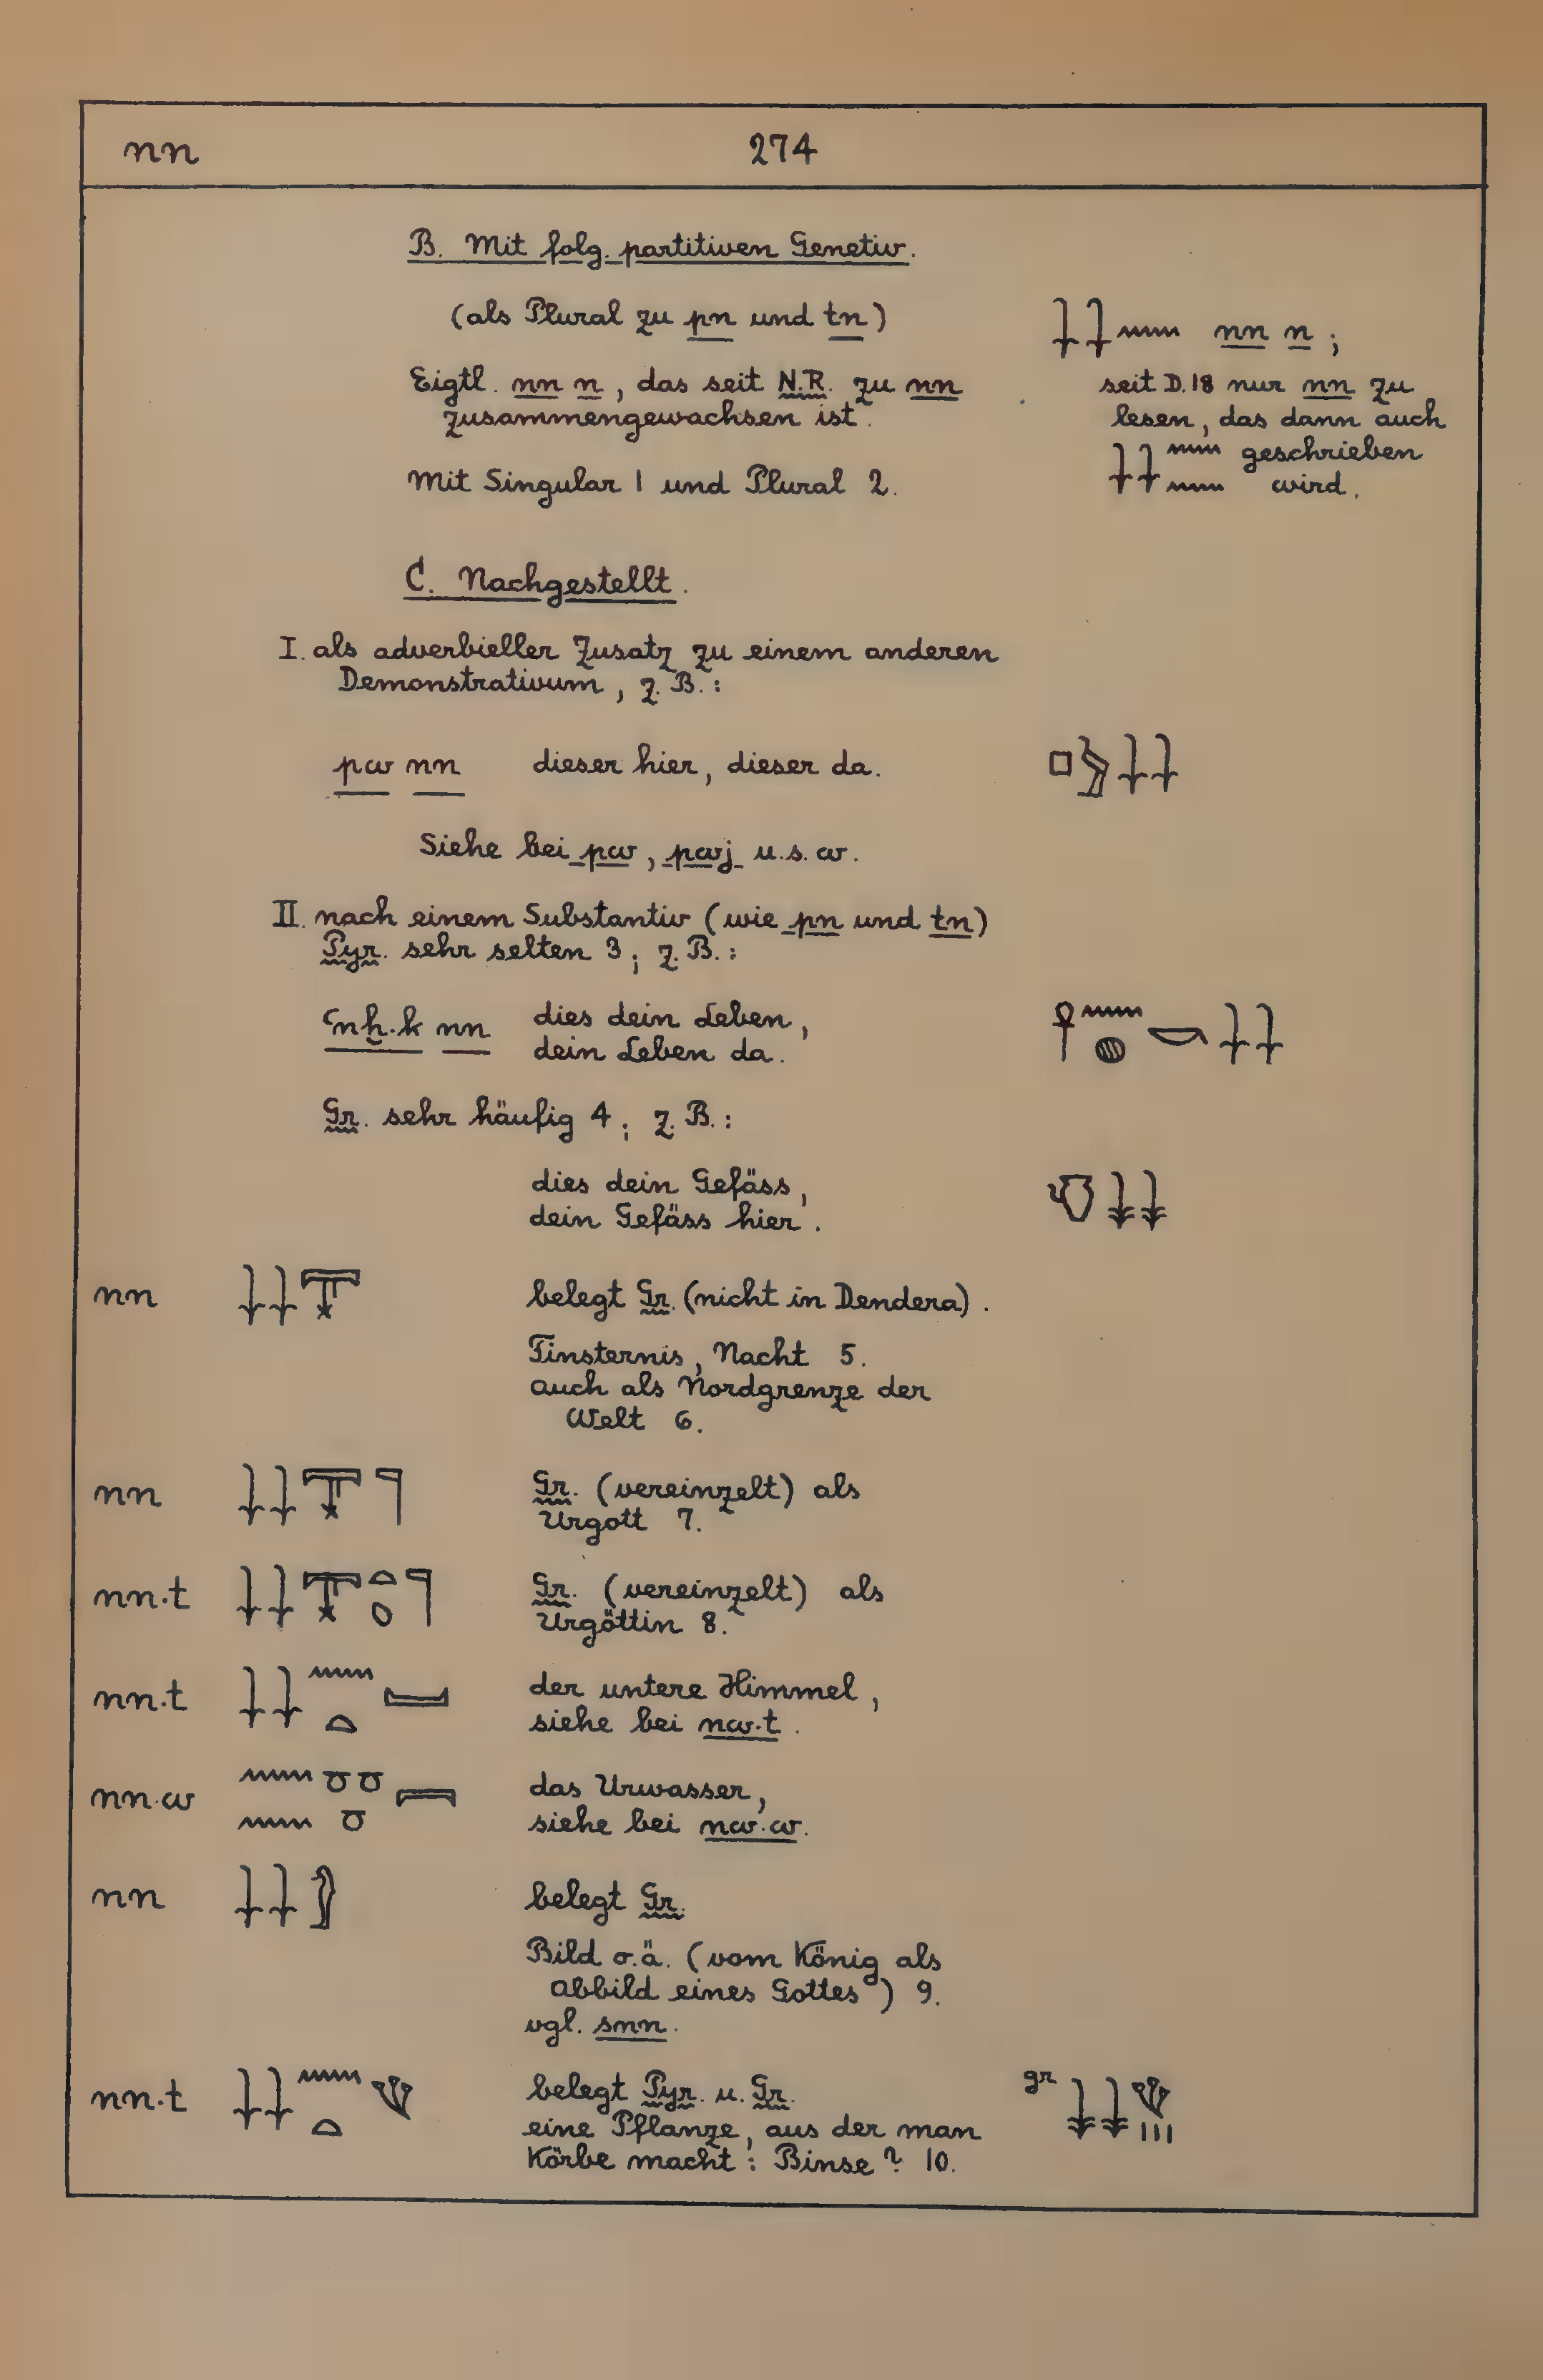 nn 274
B. Mit folg. partitiven Genetiv.
(als Plural zu pn und tn)
𓇓𓇓𓈖 nn n;
Eigtl. nn n, das seit N.R. zu nn
zusammengewachsen ist.
seit D.18 nur nn zu
lesen, das dann auch
geschrieben
wird.
Mit Singular 1 und Plural 2.
C. Nachgestellt.
I. als adverbieller Zusatz zu einem anderen
Demonstrativum, z.B.:
pw nn dieser hier, dieser da.
Siehe bei pw, pwj u.s.w.
II. nach einem Substantiv (wie pn und tn)
Pyr. sehr selten 3; z.B.:
ꜥnḫ.k nn dies dein Leben,
dein Leben da.
Gr. sehr häufig 4; z.B.:
dies dein Gefäss,
dein Gefäss hier.
nn belegt Gr. (nicht in Dendera).
Finsternis, Nacht 5.
auch als Nordgrenze der
Welt 6.
nn Gr. (vereinzelt) als
Urgott 7.
nn.t Gr. (vereinzelt) als
Urgöttin 8.
nn.t der untere Himmel,
siehe bei nw.t.
nn.w das Urwasser,
siehe bei nw.w.
nn belegt Gr.
Bild o.ä. (vom König als
Abbild eines Gottes) 9.
vgl. snn.
nn.t belegt Pyr. u. Gr.
gr
eine Pflanze, aus der man
Körbe macht: Binse? 10.